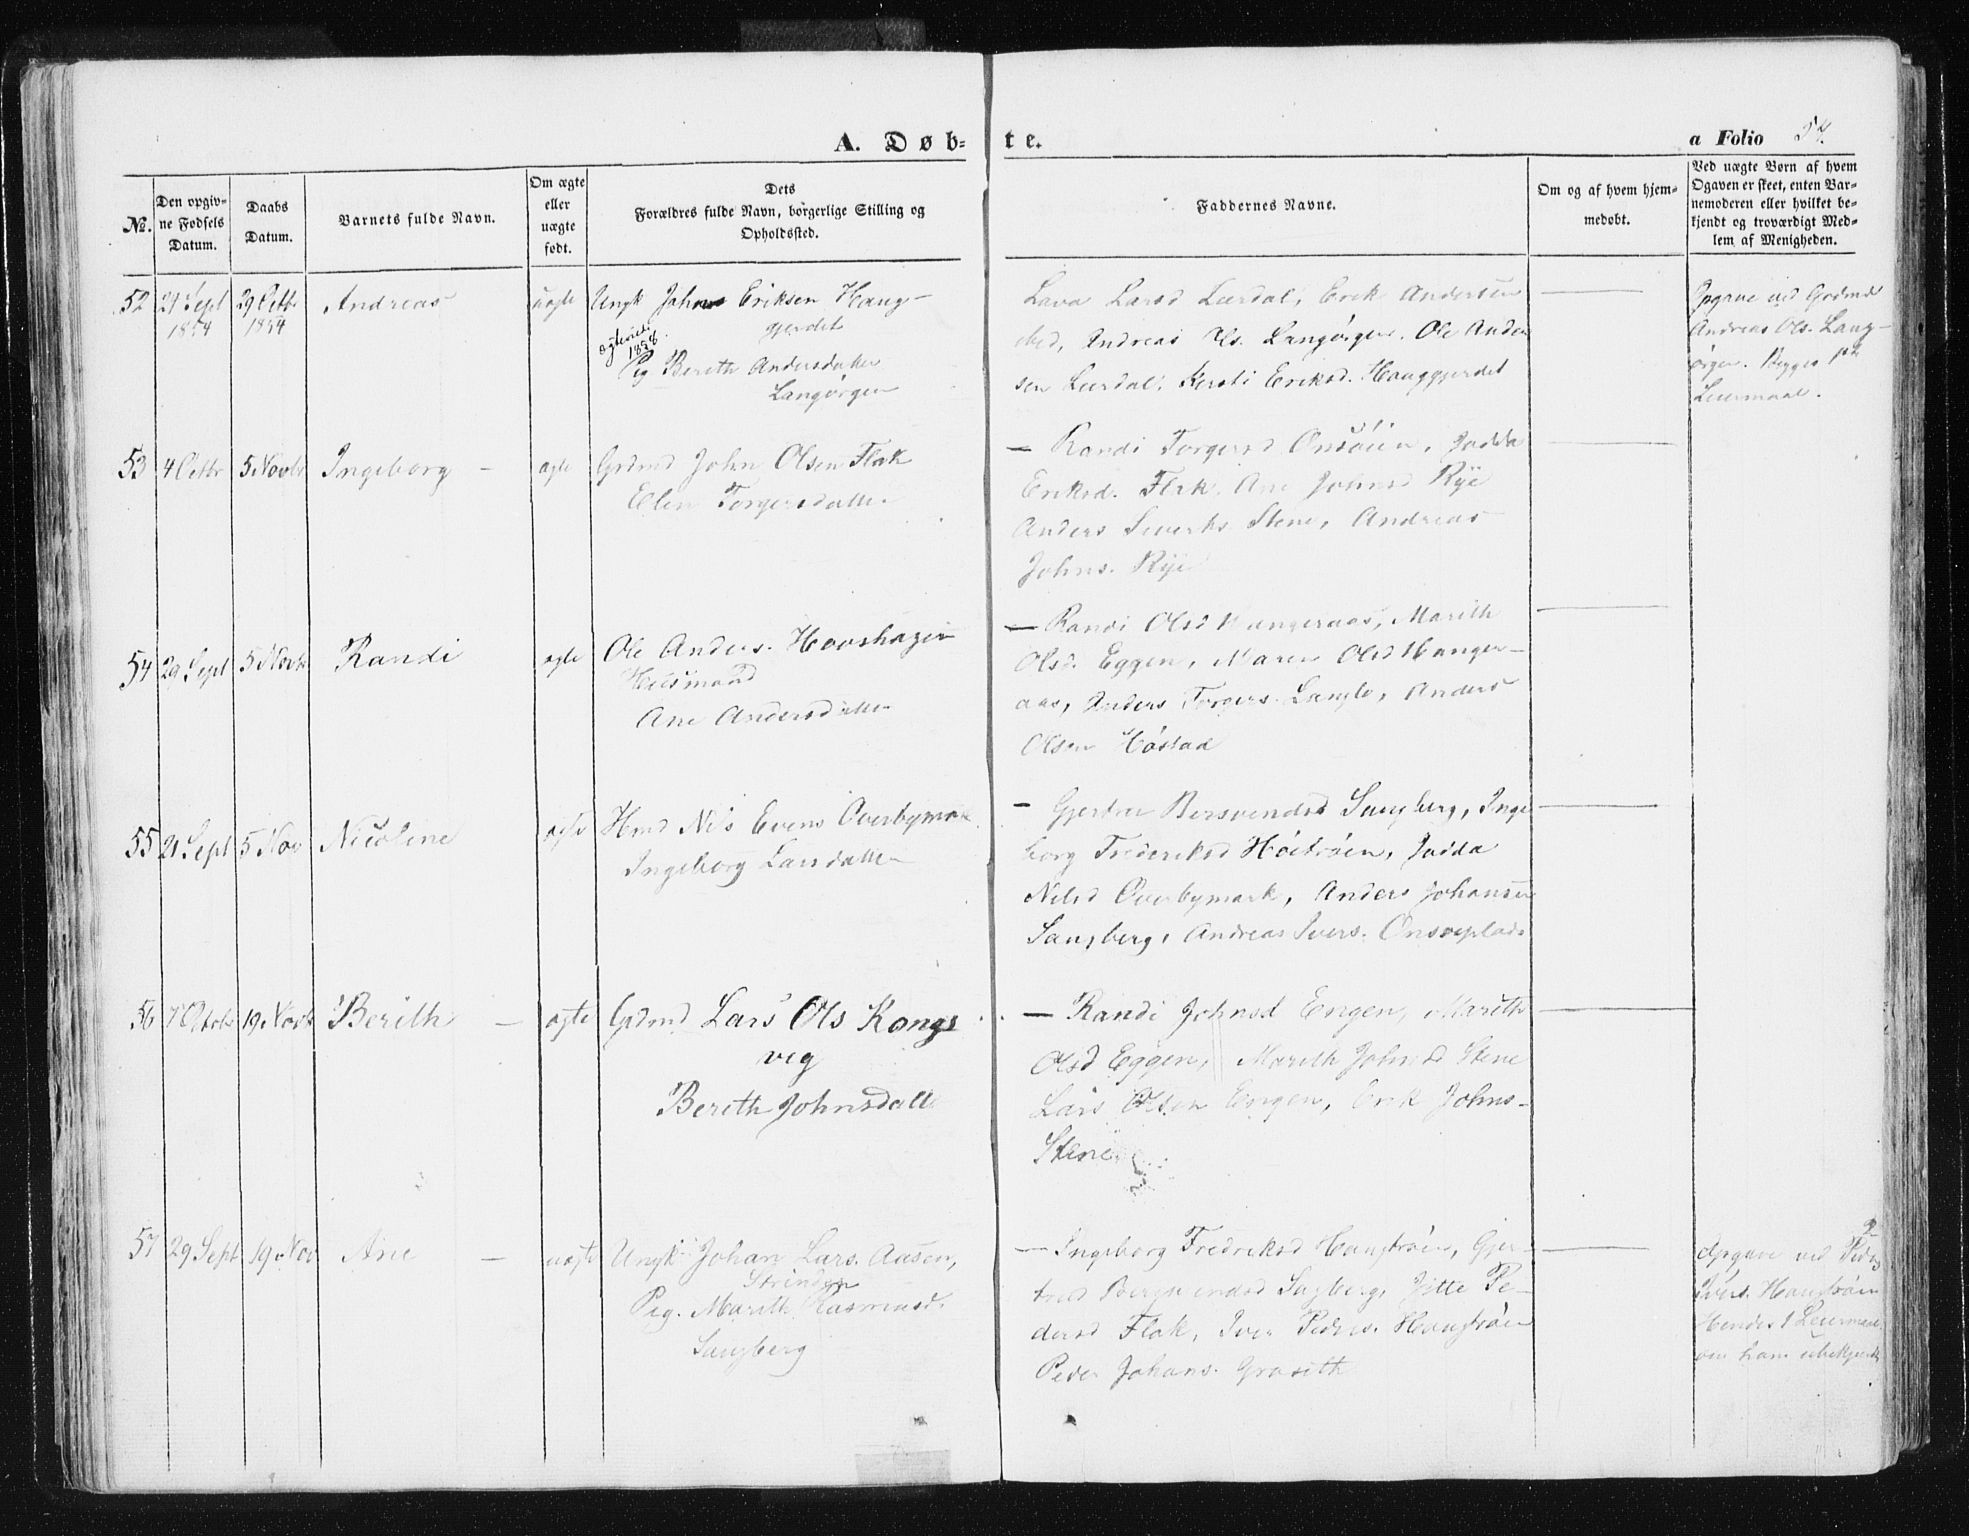 A. Døb-
te.
a Folio 54.
No.
Den opgiv-
ne Fødsels
Datum.
Daabs
Datum.
Barnets fulde Navn.
Om ægte
eller
uægte
født.
Dets
Forældres fulde Navn, borgerlige Stilling og
Opholdssted.
Faddernes Navne.
Om og af hvem hjem-
medøbt.
Ved uægte Børn af hvem
Opgaven er skeet, enten Bar-
nemoderen eller hvilket be-
kjendt og troværdigt Med-
lem af Menigheden.
52 21 Sept 29 Octbr Andreas uægte Ungk Johan Eriksen Haug-
1854 1854 gjerdet
1858.
Pig Berith Andersdatter
Langørgen
Larsd Lærdal, Erik Andersen
Andreas Ols. Langørgen. Ole Ander
sen Lærdal, Kersti Eriksd. Hauggjerdet
Opgave ved Grdmd
Andreas Ols. Lang-
ørgen. Begges 1ste
Leiermaal.
53 4 Octbr 5 Novbr Ingeborg - ægte Grdmd John Olsen Flak
Elen Torgersdatter
- Randi Torgersd Onsøien, Jodda
Eriksd. Flak. Ane Johnsd Rye
Anders Siverts Stene, Andreas
Johns. Rye
54 29 Sept 5 Novbr Randi ægte Ole Anders. Hovshagen
Huusmand
Ane Andersdatter
- Randi Olsd Hangeraas, Marith
Olsd. Eggen, Maren Olsd Hanger-
aas, Anders Torgers. Langlo, Anders
Olsen Høstad
55 21 Sept 5 Nov Nicoline ægte Hmd Nils Evens Overbymark
Ingeborg Larsdatter
- Gjertru Bersvendsd Saugberg, Inge
borg Frederiksd Høitrøen, Jodda
Nilsd Overbymark, Anders Johansen
Saugberg, Andreas Ivers. Onsøieplads
56 7 Octobr 19 Novbr Berith - ægte Grdmd Lars Ols Kongs
veg
Berith Johnsdatt
- Randi Johnsd Engen, Marith
Olsd Eggen, Marith Johnsd Stene
Lars Olsen Engen, Erik Johns-
Stene
57 29 Sept 19 Nov Ane - uægte Ungk Johan Lars. Aasen,
Strinden
Pig. Marith Rasmusd.
Saugberg
- Ingeborg Fredriksd Haugtrøen, Gjer-
trud Bersvendsd Saugberg, Jitte Pe-
dersd Flak, Iver Peders. Haugtrøen
Peder Johans. Graasith
Opgave ved Peder
Ivers. Haugtrøen
Hendes 1 Leiermaal
om ham ubekjendt